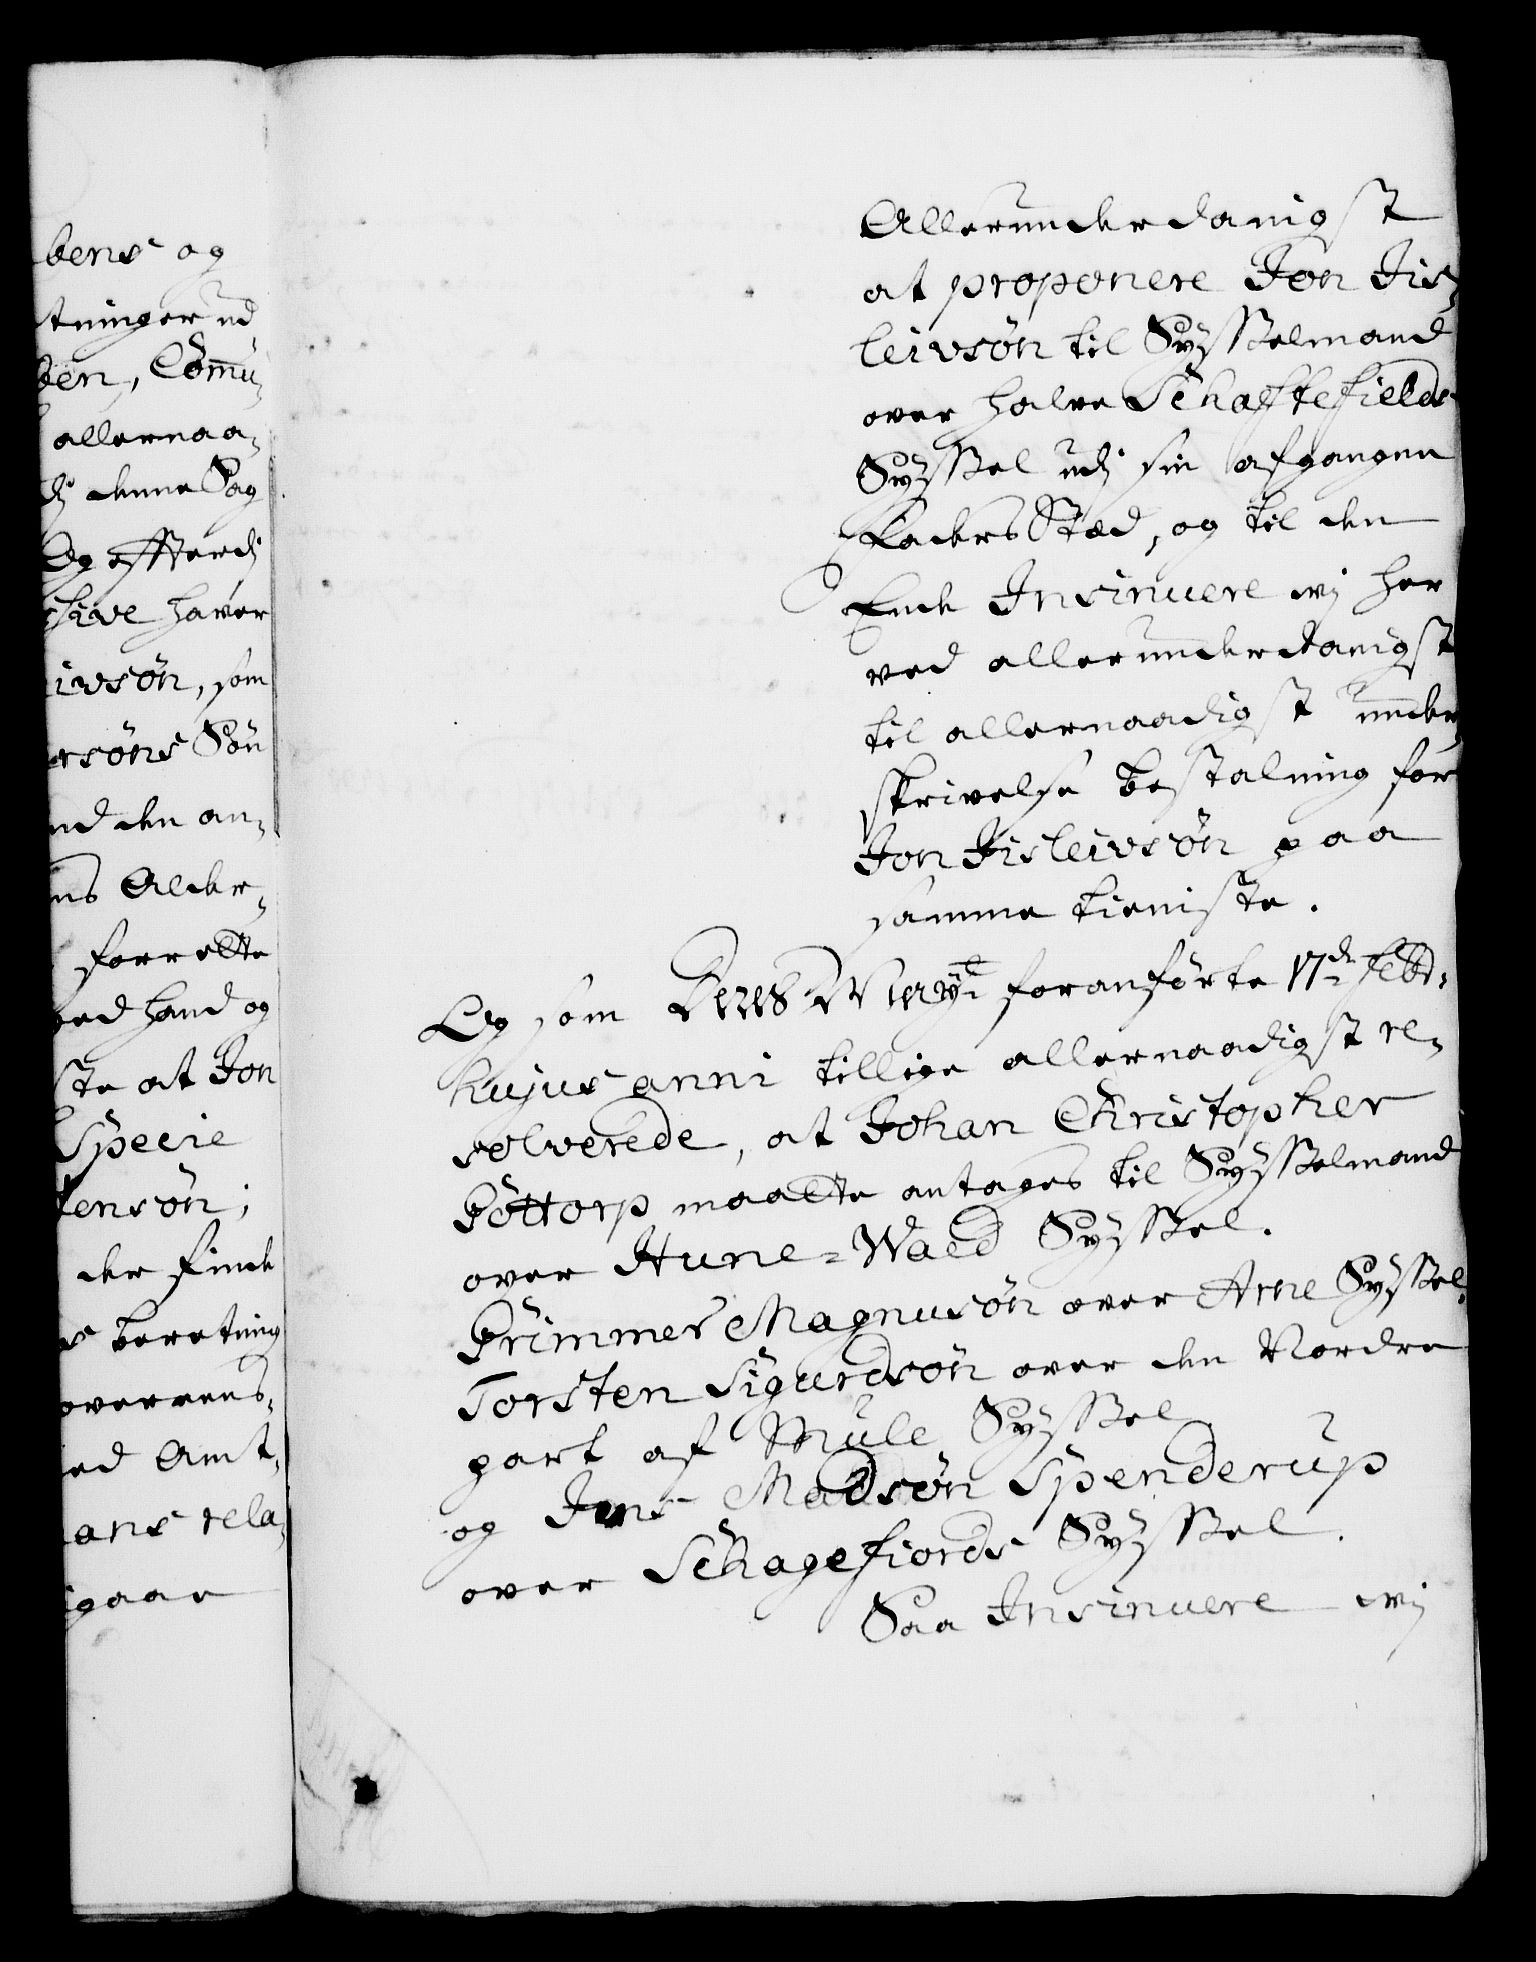 bens og
tninger ud
ben, Com̄u¬
allernaa¬
dj denne Sag
Og effterdj
haver
ivsøn, som
ersøns Søn
nd den an¬
ns Alder¬
forrette
ved haand og
ste at Jon
Specie
tensøn;
der finde
s beretning
overeens¬
ed Amt¬
ans rela¬
gaar
Allerunderdanigst
at proponere Jon Jis¬
leivsøn til Sysselmand
over halve Schafftefields
Syssel udj sin afgangne
Faders Stæd, og til den
Ende Insinuere wj her
ved allerunderdanigst
til allernaadigst under¬
skrivelse bestalning for
Jon Jisleivsøn paa
samme tieniste.
Og som Deris Mayt foranførte 17de Febr:
hujus anni tillige allernaadigst re¬
solverede, at Johan Christopher
Gottorp maatte antages til Sysselmand
over Hune=Waed Syssel.
Grimmer Magnusøn over Arne Syssel.
Torsten Sigurdsøn over den Nordre
part af Mule Syssel
og Jens Madsøn Spenderup
over Schagefiords Syssel.
Saa Insinuere wj